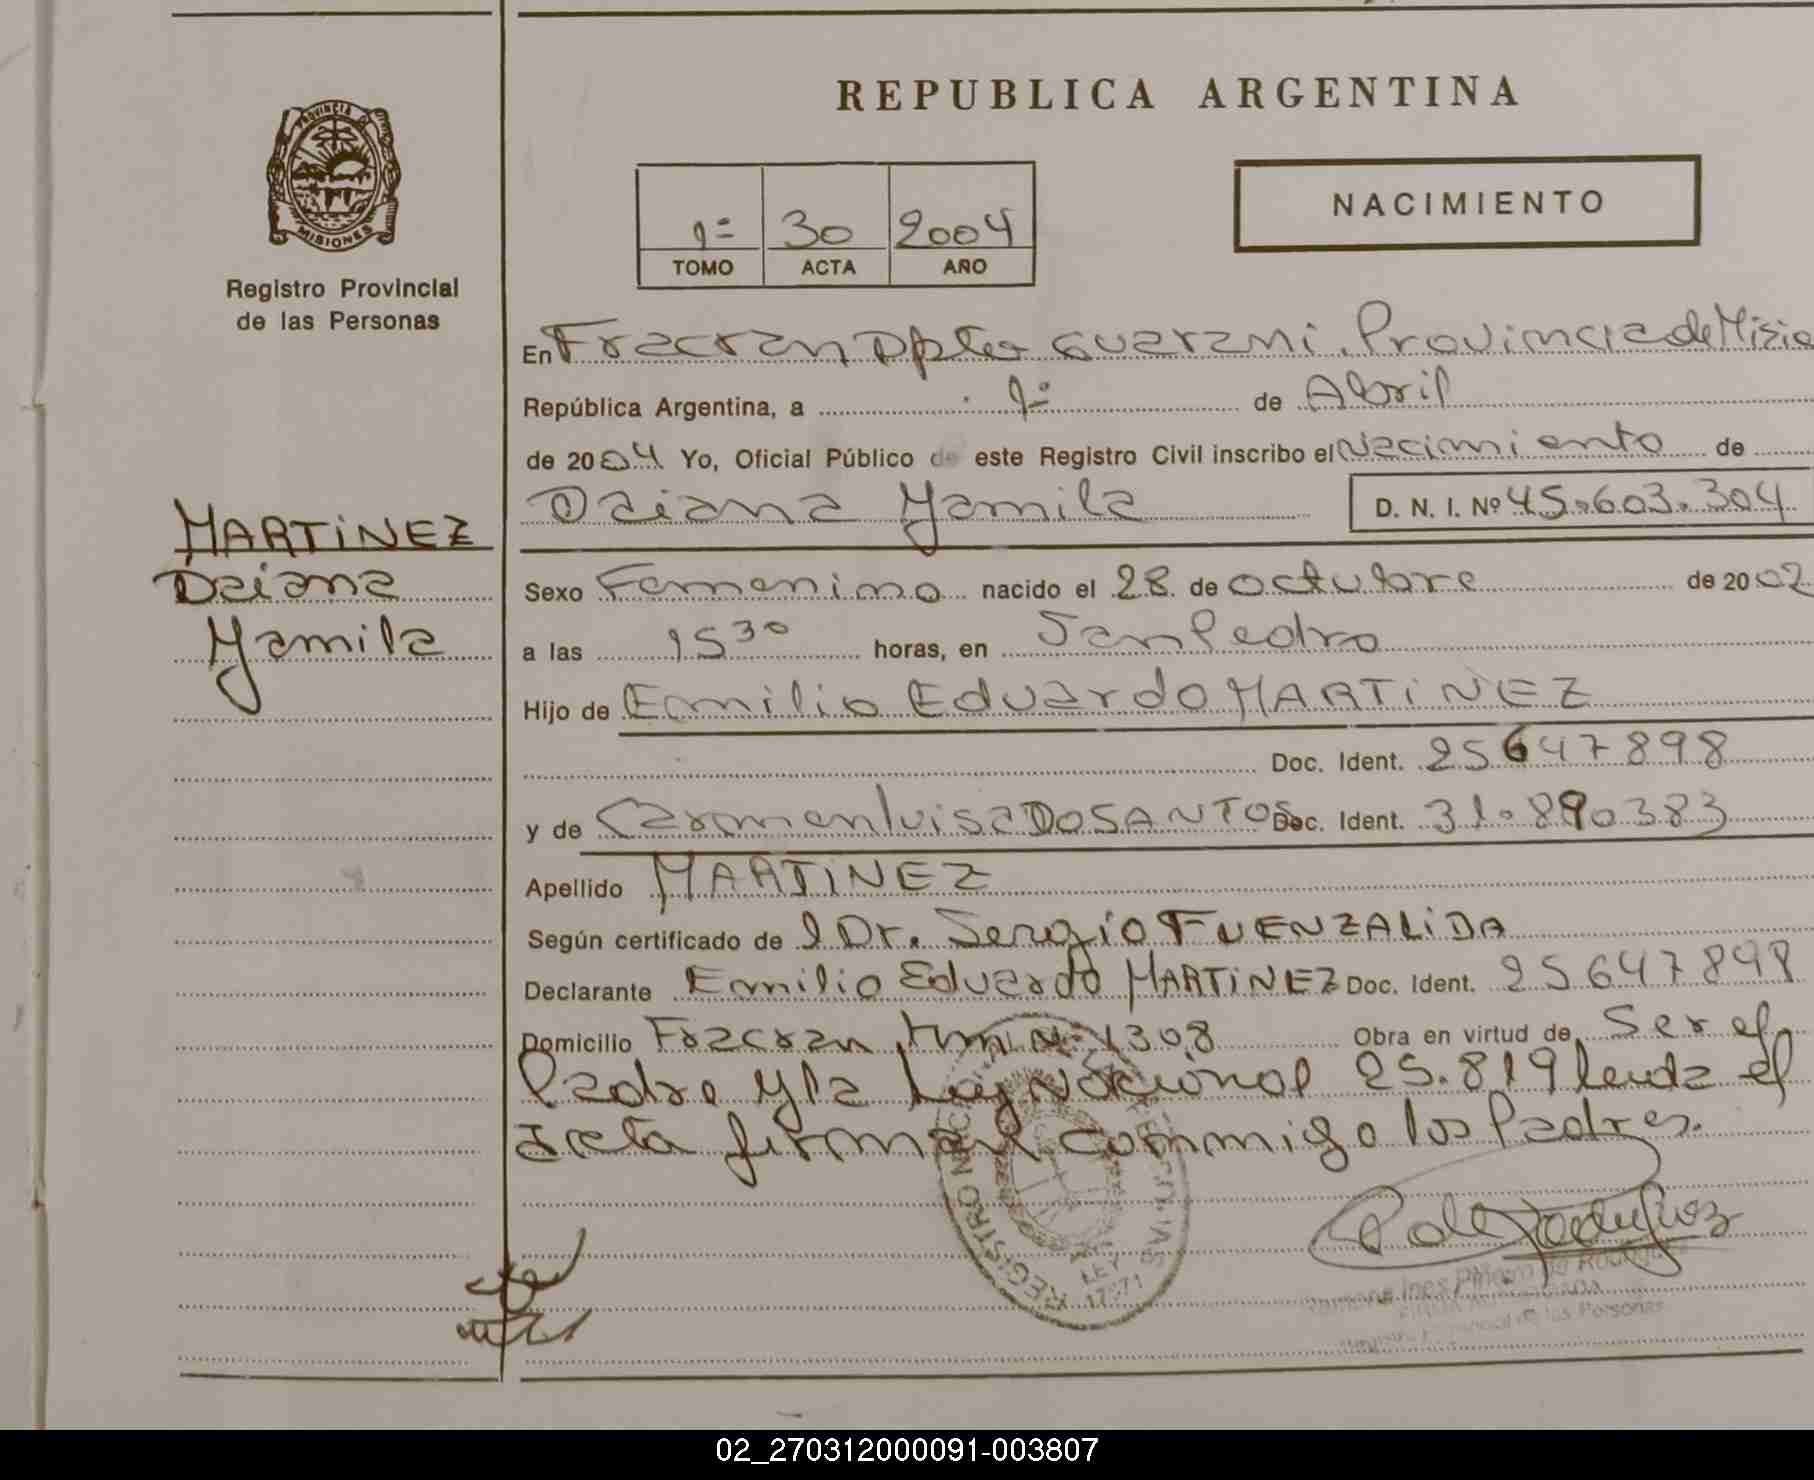 REPUBLICA ARGENTINA
PROVINCIA DE MISIONES
Registro Provincial
de las Personas
1º 30 2004
TOMO ACTA AÑO
NACIMIENTO
En Fracran Dpto Guarani. Provincia de Misio
República Argentina, a 1º de Abril
de 2004 Yo, Oficial Público de este Registro Civil inscribo el Nacimiento de
Daiana Yamila D. N. I. Nº 45.603.304
MARTiNEZ
Daiana
Yamila
Sexo Femenino nacido el 28 de octubre de 2002
a las 15 30 horas, en San Pedro
Hijo de Emilio Eduardo MARTiNEZ
Doc. Ident. 25647898
y de Carmen luisa DOSANTOS Doc. Ident. 31.890383
Apellido MARTiNEZ
Según certificado de l Dr. Sergio FUENZALiDA
Declarante Emilio Eduardo MARTiNEZ Doc. Ident. 25647898
Domicilio Fracran Km Nº 1308 Obra en virtud de Ser el
Padre y la Ley Nacional 25.819 leida el
acta firman conmigo los Padres.
REGISTRO NACIONAL
LEY
17671
Ramona Ines Piñeyro de Rodriguez
FIRMA AUTORIZADA
Registro Provincial de las Personas
02_270312000091-003807